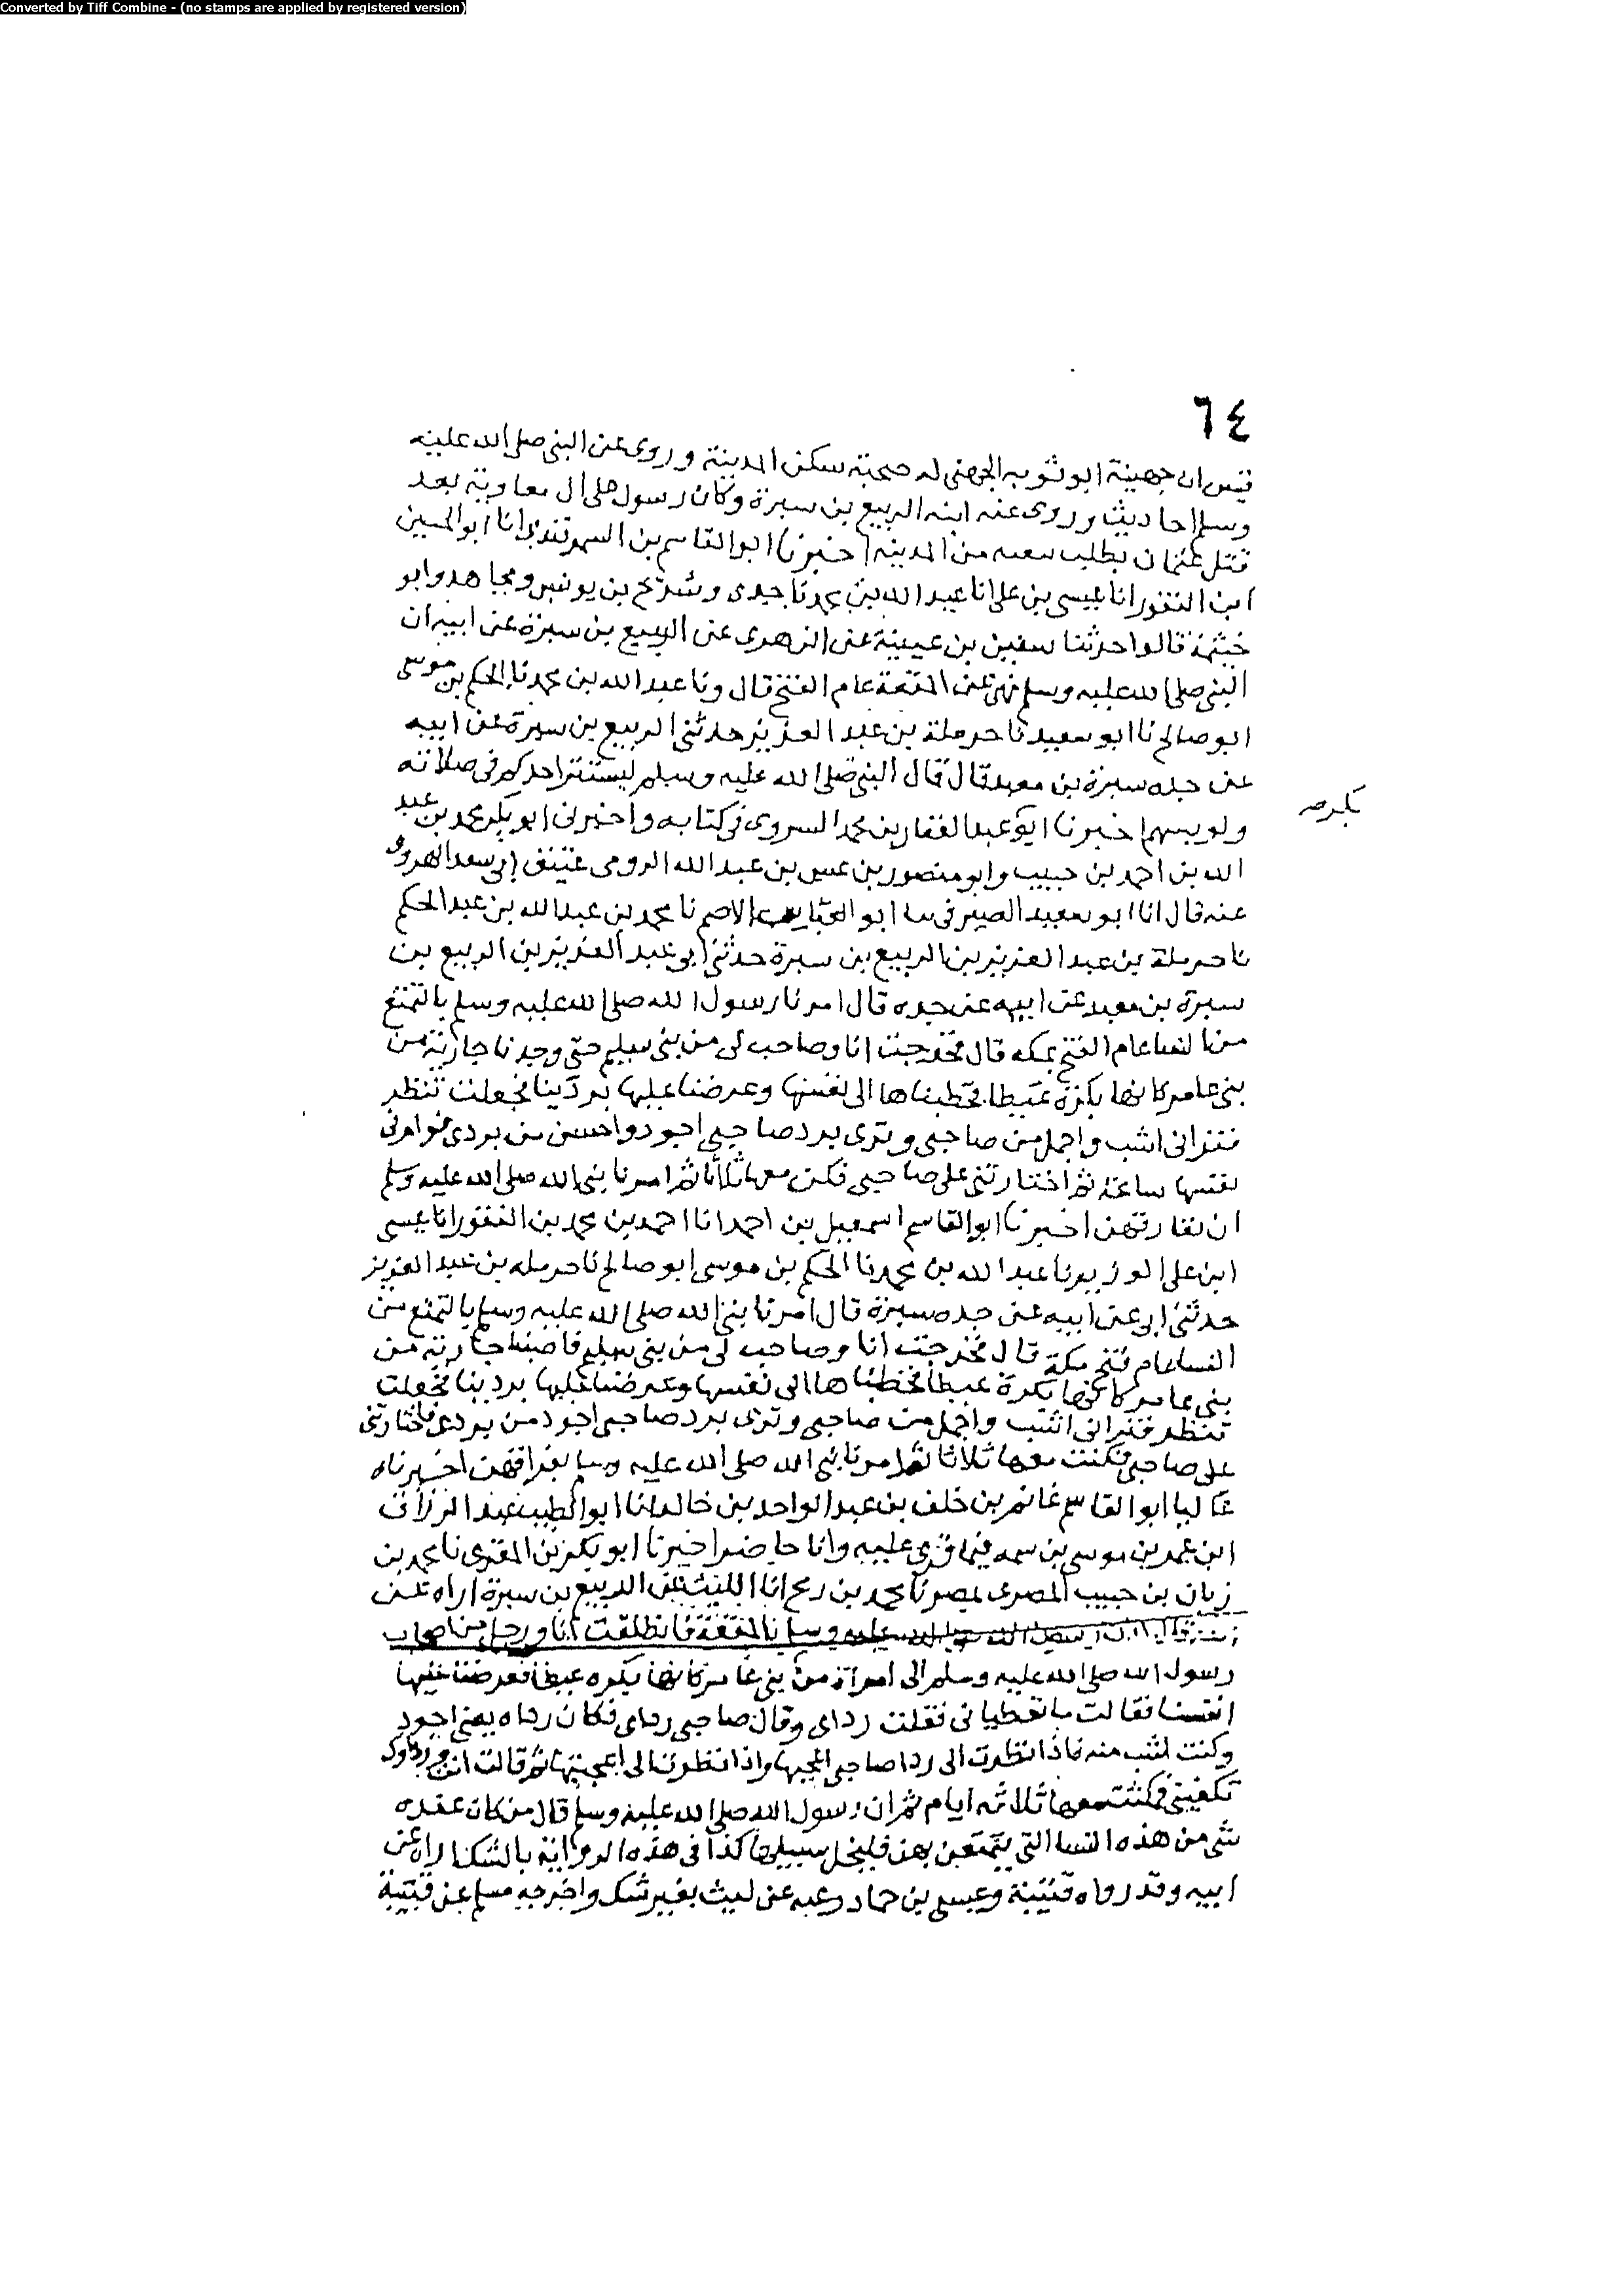 Converted by Tiff Combine - (no stamps are applied by registered version)
٦٤
قيس ان جهينة ابو ثوبه الجهني له صحبة سكن المدينة وروى عن النبي صلى الله عليه
وسلم احاديث وروى عنه ابنه الربيع بن سبرة وكان رسول علي ال معاوية بعد
قتل عثمان يطلب سعه من المدينة اخبرنا ابو القاسم بن السمرقندي انا ابو الحسين
ابن النقور انا عيسى بن علي انا عبد الله بن محمد نا جدى وشريح بن يونس ومجاهد وابو
خيثمة قالوا حدثنا سفين بن عيينة عن الزهرى عن الربيع بن سبرة عن ابيه ان
النبي صلى الله عليه وسلم نهى عن المتعة عام الفتح قال ونا عبد الله بن محمد نا الحكم بن موسى
ابو صالح نا ابو سعيد نا حرملة بن عبد العزيز حدثني الربيع بن سبرة عن ابيه
عن جده سبرة بن معبد قال قال النبي صلى الله عليه وسلم ليستتر احدكم في صلاته
ولو بسهم اخبرنا ابو بكر عبد الغفار بن محمد السروى في كتابه واخبرني ابو بكر محمد بن عبد
الله بن احمد بن حبيب وابو منصور بن عبد الله الرومى عتيق ابي سعد الهروى
عنه قال انا ابو سعيد الصيرفي نا ابو العباس الاصم نا محمد بن عبد الله بن عبد الحكم
نا حرملة بن عبد العزيز بن الربيع بن سبرة حدثني ابي عبد العزيز بن الربيع بن
سبرة بن معبد عن ابيه عن جده قال امرنا رسول الله صلى الله عليه وسلم بالتمتع
من النسا عام الفتح بمكه قال فخرجت انا وصاحب لي من بني سليم حتى وجدنا جارية من
بني عامر كانها بكرة عيطا فخطبناها الى نفسها وعرضنا عليها بردينا فجعلت تنظر
فتراني اشب واجمل من صاحبي وترى برد صاحبي اجود واحسن من بردى فوامرت
نفسها ساعة ثم اختارتني على صاحبي فكن معنا ثلاثا ثم امرنا نبي الله صلى الله عليه وسلم
ان نفارقهن اخبرنا ابو القاسم اسمعيل بن احمد انا احمد بن محمد بن النقور انا عيسى
ابن علي الوزير نا عبد الله بن محمد نا الحكم بن موسى ابو صالح نا حرمله بن عبد العزيز
حدثني ابي عن ابيه عن جده سبرة قال امرنا نبي الله صلى الله عليه وسلم بالتمتع من
النسا عام فتح مكة قال فخرجت انا وصاحب لي من بني سليم فاصبنا جارية من
بني عامر كانها بكرة عيطا فخطبناها الى نفسها وعرضنا عليها بردينا فجعلت
تنظر فتراني اشب واجمل من صاحبي وترى برد صاحبي اجود من بردى فاختارتني
على صاحبي فكنت معها ثلاثا ثم امرنا نبي الله صلى الله عليه وسلم بفراقهن اخبرناه
عاليا ابو القاسم غانم بن خلف بن عبد الواحد بن خالد انا ابو الطيب عبد الرزاق
ابن عمر بن موسى بن سمه فيما قرى عليه وانا حاضر اخبرنا ابو بكر بن المقرى نا محمد بن
زبان بن حبيب المصرى بمصر نا محمد بن رمح انا الليث عن الربيع بن سبرة اراه عن
رسول الله صلى الله عليه وسلم بالمتعة فانطلقت انا ورجل من اصحاب
رسول الله صلى الله عليه وسلم الى امراة من بني عامر كانها بكره عيطا فعرضنا عليها
انفسنا فقالت ما تعطياني فقلت رداى وقال صاحبي رداى فكان رداه يعني اجود
وكنت اشب منه فاذا نظرت الى ردا صاحبي اعجبها واذا نظرت الى اعجبتها ثم قالت انت ورداوك
تكفيني فمكثت معها ثلاثه ايام ثم ان رسول الله صلى الله عليه وسلم قال من كان عنده
شي من هذه النسا التي يتمتعن بهن فليخل سبيلها كذا في هذه الرواية بالشك اراه عن
ابيه وقد رواه قتيبة وعيسى بن حماد رعبه عن ليث بغير شك واخرجه مسلم عن قتيبة